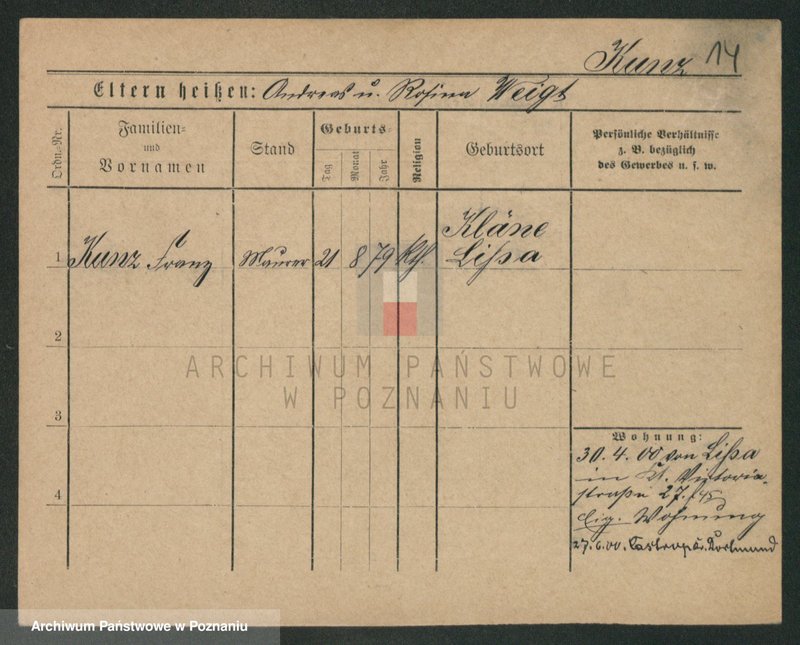 Kunz 14
Eltern heißen: Andreas u. Rosina Weigt
Ordn.-Nr.
Familien-
und
Vornamen
Stand
Geburts-
Tag
Monat
Jahr
Religion
Geburtsort
Persönliche Verhältnisse
z. B. bezüglich
des Gewerbes u. s. w.
1 Kunz Franz Maurer 21 8 79 kth. Kläne
Lissa
2
3
4
Wohnung:
30. 4. 00 von Lissa
in St. Victoria-
straße 27.
Eig. Wohnung
27.6.00. Castrop Kr. Dortmund
ARCHIWUM PAŃSTWOWE
W POZNANIU
Archiwum Państwowe w Poznaniu